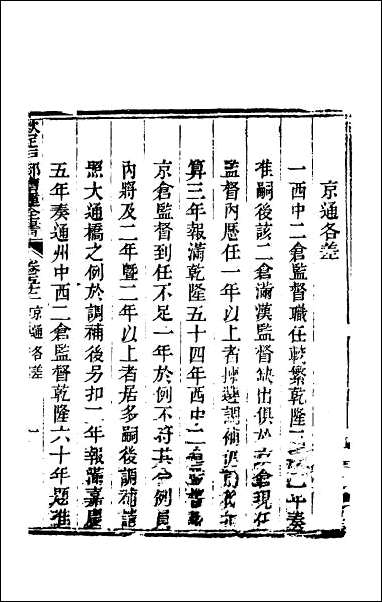 京通各差
一西中二倉監督職任較繁乾隆二年奏
准嗣後該二倉滿漢監督缺出俱於倉現任
監督內歷任一年以上者揀選調補
算三年報滿乾隆五十四年西中二倉監督
京倉監督到任不足一年於例不符其例員
內將及二年暨二年以上者居多嗣後調補請
照大通橋之例於調補後另扣一年報滿嘉慶
五年奏通州中西二倉監督乾隆六十年題准
戶部漕運全書
卷五十二 京通各差 一